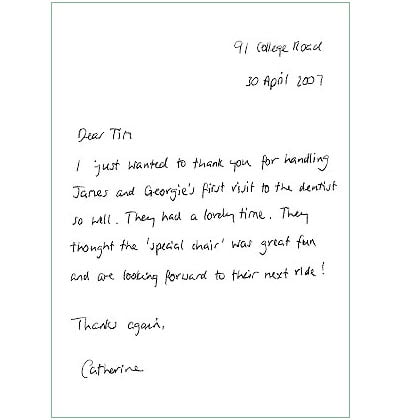 91 College Road
30 April 2007
Dear Tim
I just wanted to thank you for handling
James and Georgie's first visit to the dentist
so well. They had a lovely time. They
thought the 'special chair' was great fun
and are looking forward to their next ride!
Thanks again,
Catherine